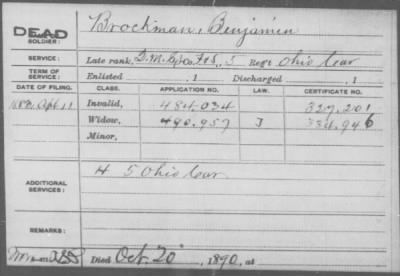 DEAD SOLDIER: Brockman, Benjamin
SERVICE: Late rank, Q.M. Sgt Co. F&S, 5 Reg't Ohio Cav
TERM OF SERVICE: Enlisted , 1 Discharged , 1
DATE OF FILING. CLASS. APPLICATION NO. LAW. CERTIFICATE NO.
Apl 11 Invalid, 484.034 329.201
Widow, 490.957 J 334.946
Minor,
ADDITIONAL SERVICES: H 5 Ohio Cav
REMARKS:
Died Oct. 20, 1890, at